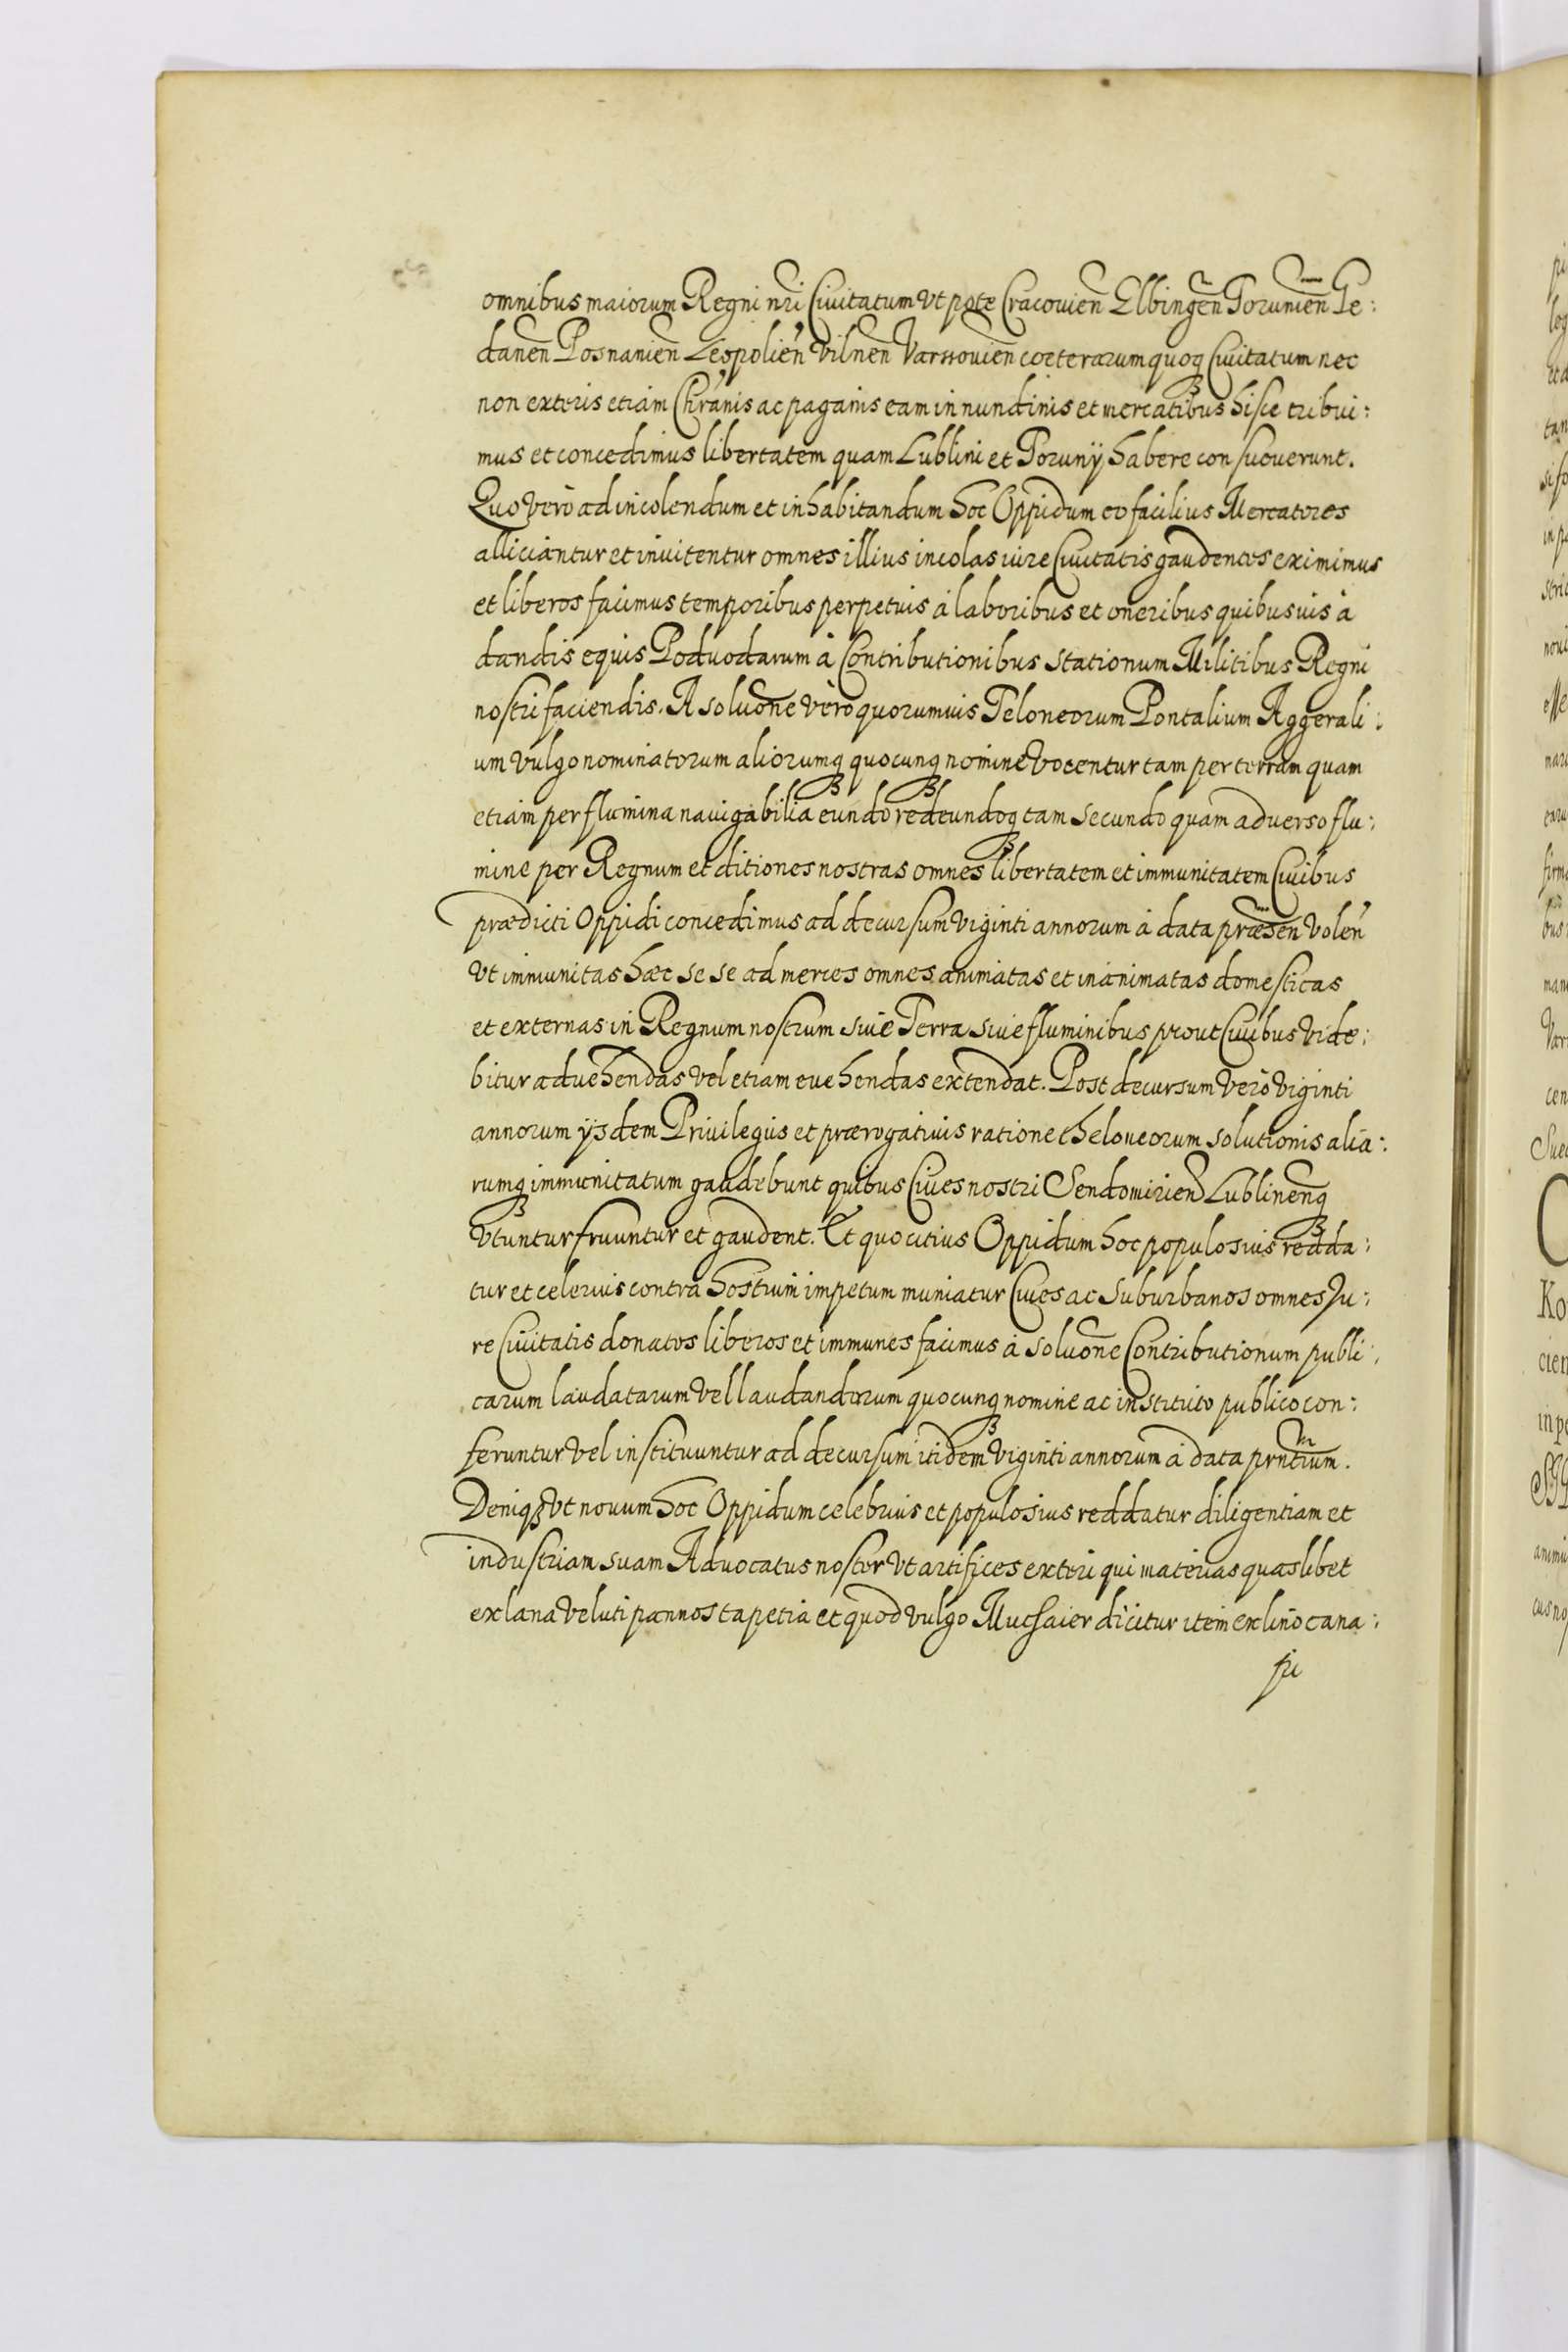 omnibus maiorum Regni nrĩ Ciuitatum vt pote Cracouien̄ Elbingen̄ Torunien̄ Ge:
danen̄ Posnanien̄ Leopolien̄ Vilnen̄ Varsouien̄ coeterarumquoq Ciuitatum nec
non exteris etiam Chrānis ac paganis eam in nundinis et mercatibus hisce tribui:
mus et concedimus libertatem quam Lublini et Torunÿ habere consueuerunt.
Quo verò ad incolendum et inhabitandum hoc Oppidum eo facilius Mercatores
alliciantur et inuitentur omnes illius incolas iure Ciuitatis gaudentes eximimus
et liberos facimus temporibus perpetuis à laboribus et oneribus quibusuis à
dandis equis Poduodarum à Contributionibus stationum Militibus Regni
nostri faciendis. A soluōne verò quorumuis Teloneorum Pontalium Aggerali:
um vulgo nominatorum aliorumq quocunq nomine vocentur tam per terram quam
etiam per flumina nauigabilia eundo redeundoq tam secundo quam aduerso flu:
mine per Regnum et ditiones nostras omnes libertatem et immunitatem Ciuibus
prædicti Oppidi concedimus ad decursum viginti annorum à data præsen̄ volen̄
vt immunitas hæc se se ad merces omnes animatas et inanimatas domesticas
et externas in Regnum nostrum siue Terra siue fluminibus prout Ciuibus vide:
bitur aduehendas vel etiam euehendas extendat. Post decursum verò viginti
annorum ijsdem Priuilegiis et prærogatiuis ratione theloneorum solutionis alia:
rumq immunitatum gaudebunt quibus Ciues nostri Sendomirien̄ Lublinen̄q
vtuntur fruuntur et gaudent. Et quo citius Oppidum hoc populosius redda:
tur et celerius contra hostium impetum muniatur Ciues ac suburbanos omnes Ju:
re Ciuitatis donatos liberos et immunes facimus à soluōne Contributionum publi:
carum laudatarum vel laudandarum quocunq nomine ac instituto publico con:
feruntur vel instituuntur ad decursum itidem viginti annorum à data prn̄tium.
Deniqȝ vt nouum hoc Oppidum celebrius et populosius reddatur diligentiam et
industriam suam Aduocatus noster vt artifices exteri qui materias quaslibet
ex lana veluti pannos tapetia et quod vulgo Muchaier dicitur item ex lino cana:
pi